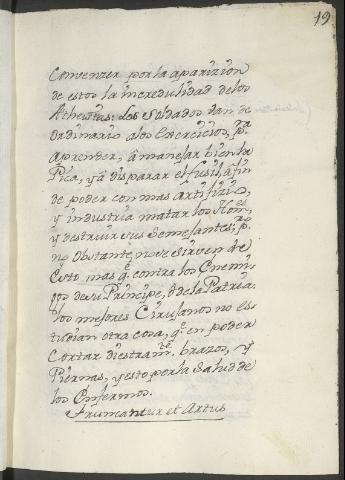 19
Convenzer por la aparizion
de estos la incredulidad de los
Atheistas. Los soldados van de
Ordinario a los Exercicios, pª
aprender, â manejar bien la
Pica, yâ disparar el fusil, â fin
de poder con mas artifizio,
y industria matar los Homes
y destruir sus Semejantes; pº
no Obstante, no ve sirven de
Esto mas q̃ contra los Enemi-
gos de su Prinzipe, ô de la Patria.
los mejores Cirujanos no es-
tudian otra cosa, q̃ en poder
Cortar diestramte. brazos, y
Piernas, y esto por la Salud de
los Enfermos.
et Artus